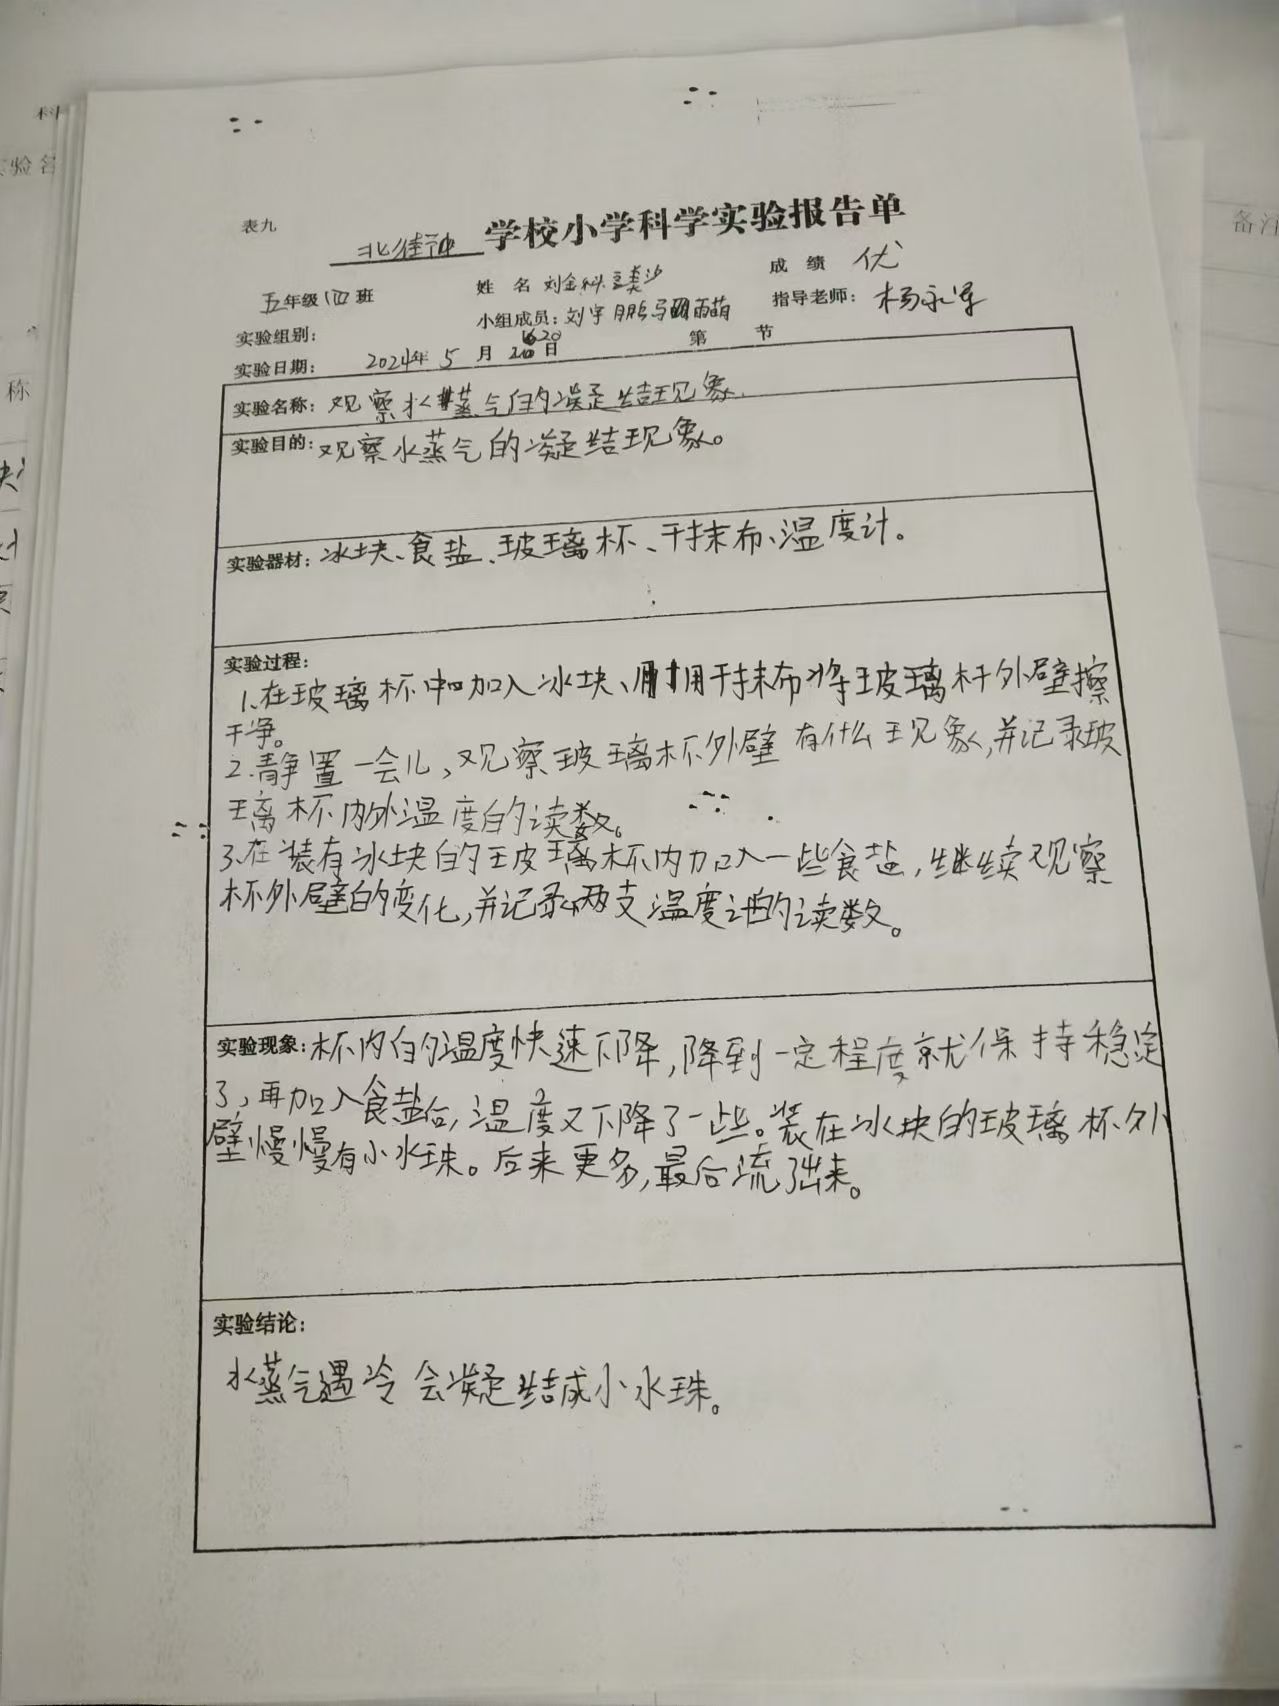 表九
学校小学科学实验报告单
五年级四班
姓 名
成 绩 优
实验组别：
小组成员：刘宇
指导老师：
实验日期： 2024年 5 月 日 第 节
实验名称：观察水蒸气的凝结现象
实验目的：观察水蒸气的凝结现象。
实验器材：冰块、食盐、玻璃杯、干抹布、温度计。
实验过程：
1.在玻璃杯中加入冰块、用干抹布将玻璃杯外壁擦
干净。
2.静置一会儿，观察玻璃杯外壁有什么现象，并记录玻
璃杯内外温度的读数。
3.在装有冰块的玻璃杯内加入一些食盐，继续观察
杯外壁的变化，并记录两支温度计的读数。
实验现象：杯内的温度快速下降，降到一定程度就保持稳定
了，再加入食盐后，温度又下降了一些。装在冰块的玻璃杯外
壁慢慢有小水珠。后来更多，最后流出来。
实验结论：
水蒸气遇冷会凝结成小水珠。
备注
科
实验名
称